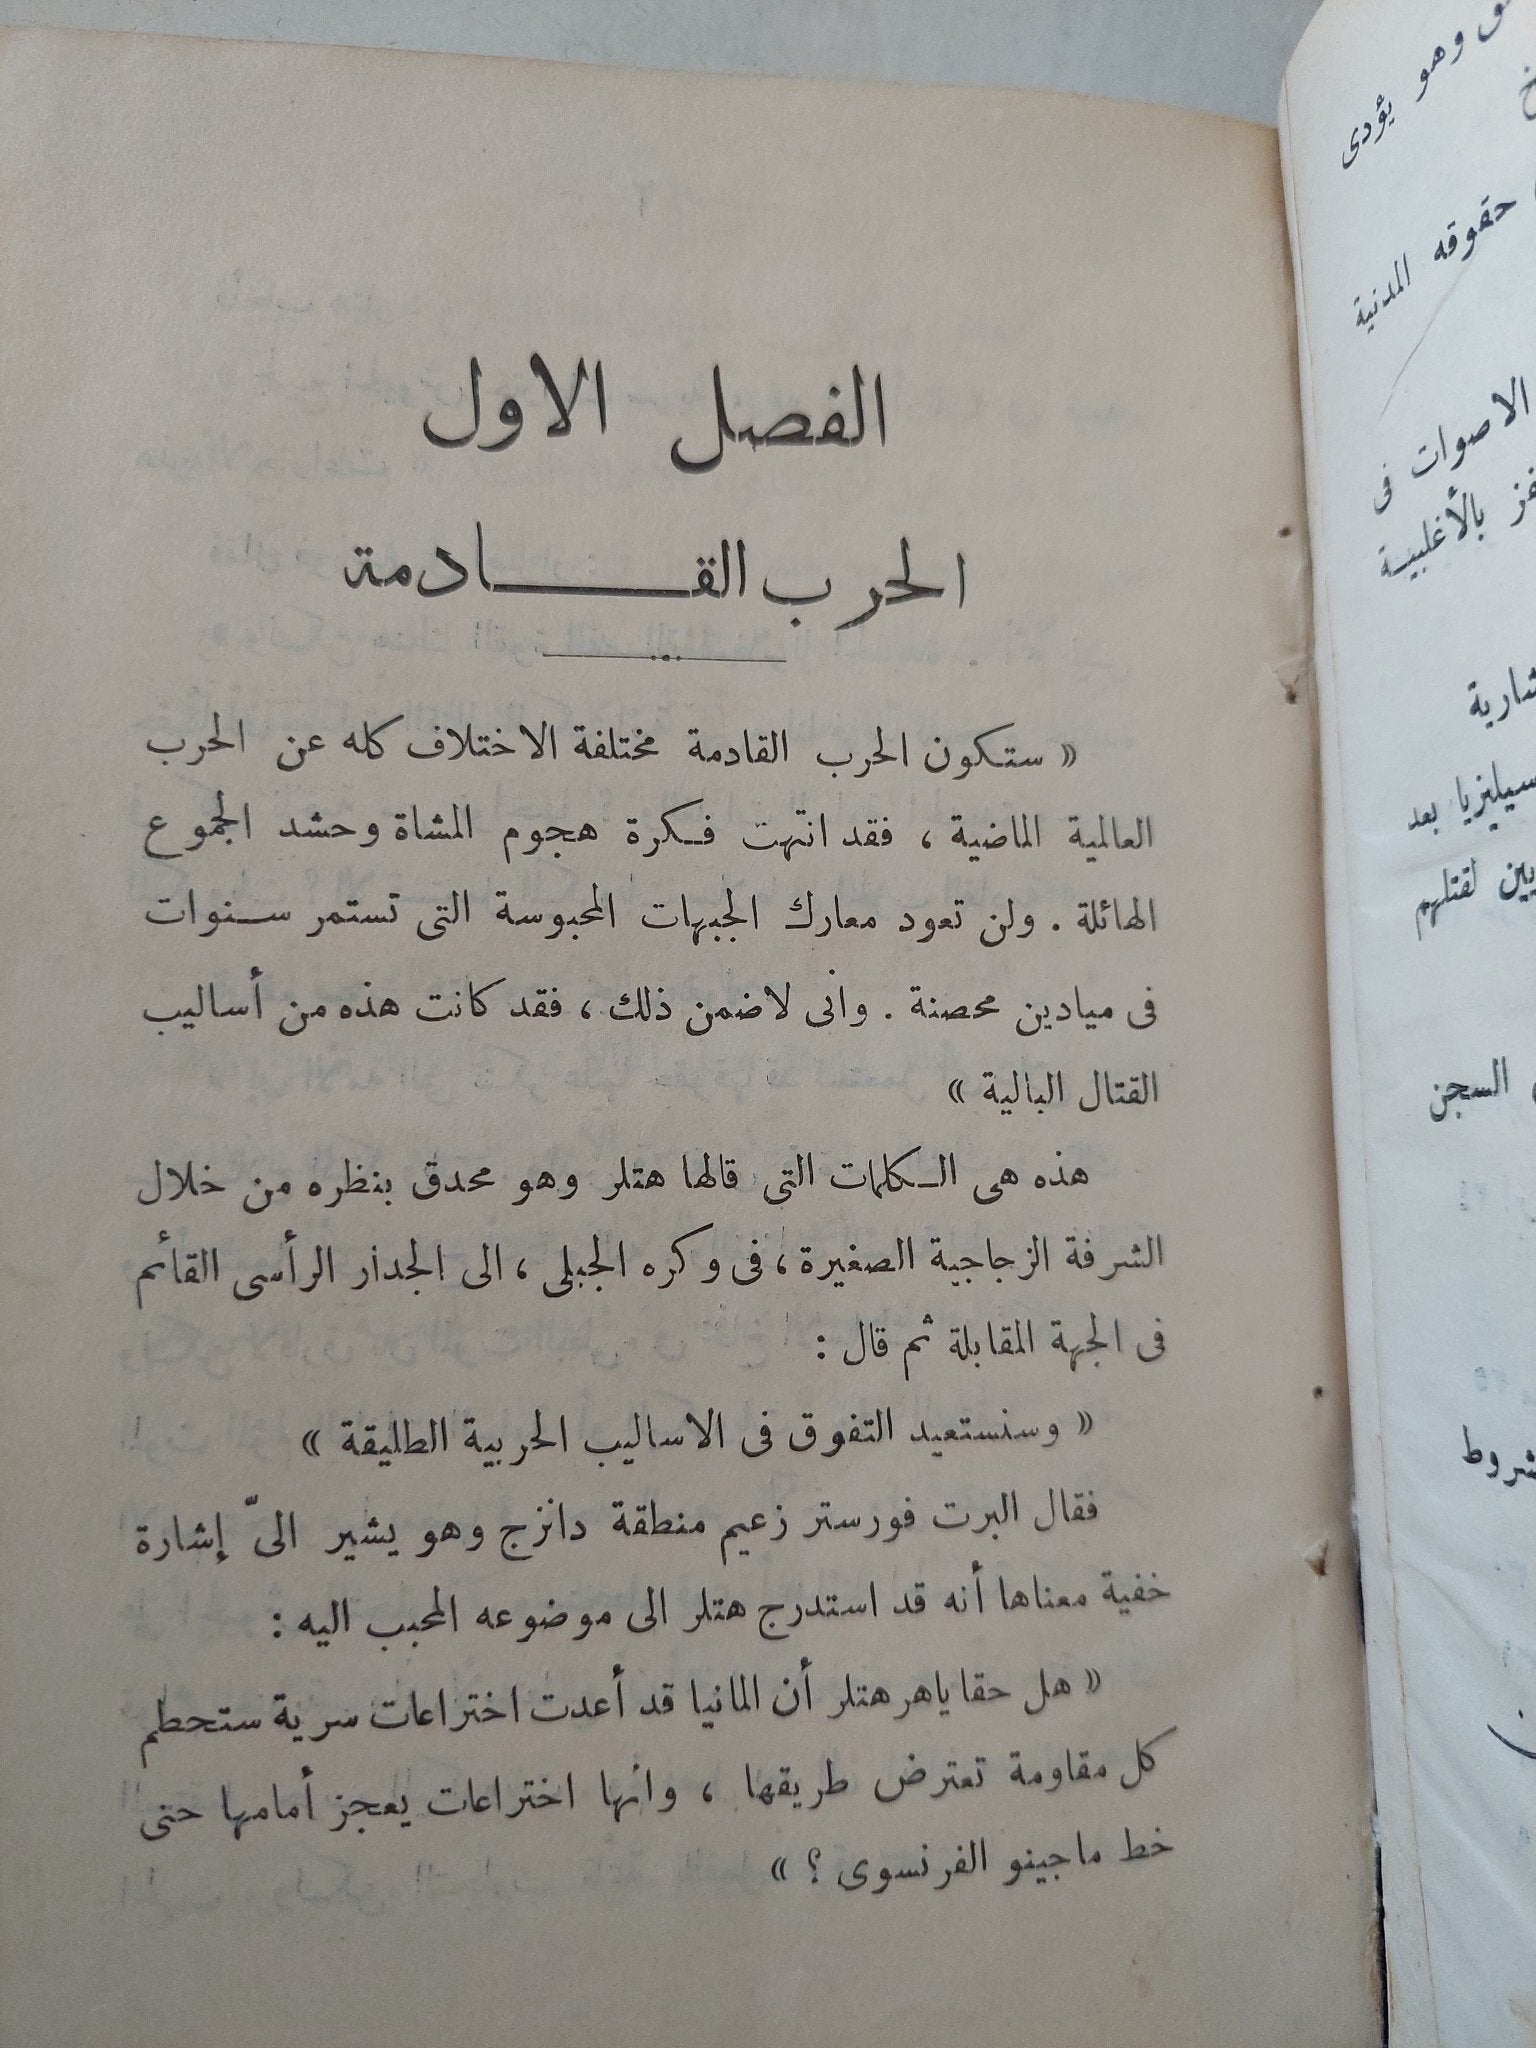 الفصل الاول
الحرب القـــــادمة
« ستكون الحرب القادمة مختلفة الاختلاف كله عن الحرب
العالمية الماضية ، فقد انتهت فـكرة هجوم المشاة وحشد الجموع
الهائلة . ولن تعود معارك الجبهات المحبوسة التى تستمر سـنوات
فى ميادين محصنة . وانى لاضمن ذلك ، فقد كانت هذه من أساليب
القتال البالية »
هذه هى الـكلمات التى قالها هتلر وهو محدق بنظره من خلال
الشرفة الزجاجية الصغيرة ، فى وكره الجبلى ، الى الجدار الرأسى القائم
فى الجهة المقابلة ثم قال :
« وسنستعيد التفوق فى الاساليب الحربية الطليقة »
فقال البرت فورستر زعيم منطقة دانزج وهو يشير الىّ إشارة
خفية معناها أنه قد استدرج هتلر الى موضوعه المحبب اليه :
« هل حقا ياهر هتلر أن المانيا قد أعدت اختراعات سرية ستحطم
كل مقاومة تعترض طريقها ، وانها اختراعات يعجز أمامها حتى
خط ماجينو الفرنسوى ؟ »
وهو يؤدى
حقوقه المدنية
الاصوات فى
بالأغلبيـة
سيليزيا بعد
لقتلهم
السجن